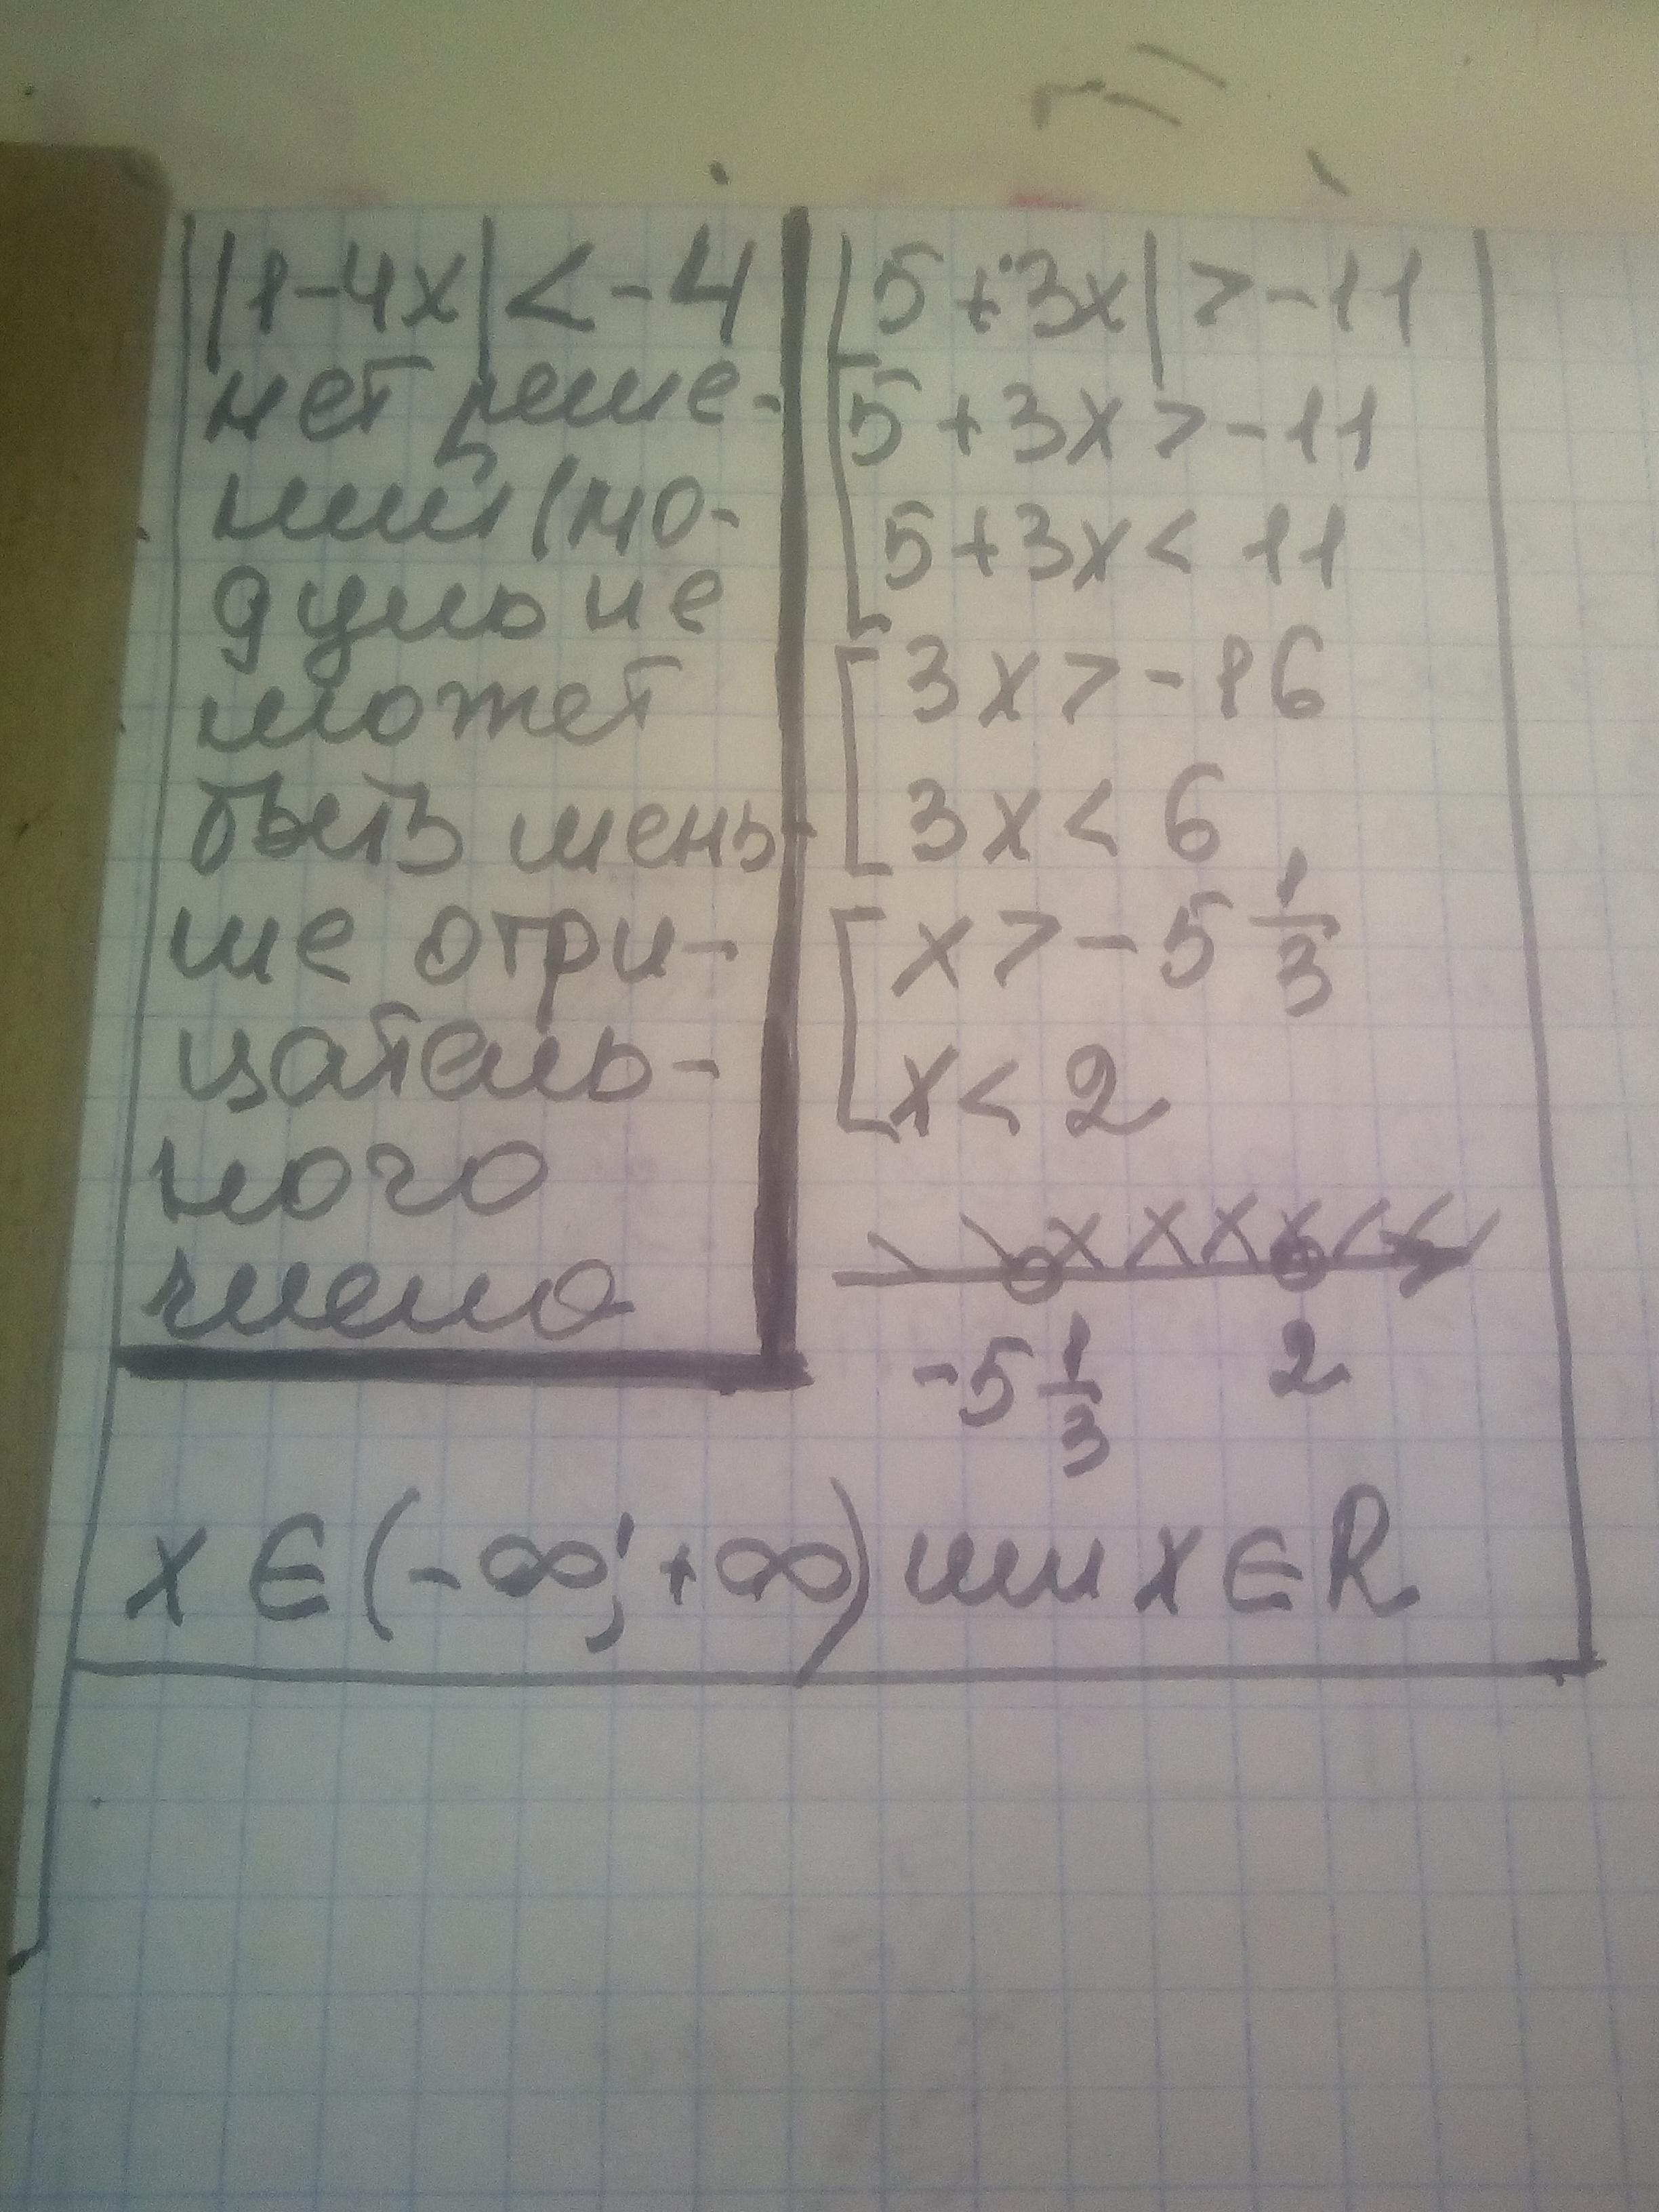 |1-4x|<-4
нет реше-
ний (мо-
дуль не
может
быть мень-
ше отри-
цатель-
ного
числа
|5+3x|>-11
5+3x>-11
5+3x<11
3x>-16
3x<6
x>-5 1/3
x<2
-5 1/3 2
x∈(-∞;+∞) или x∈R